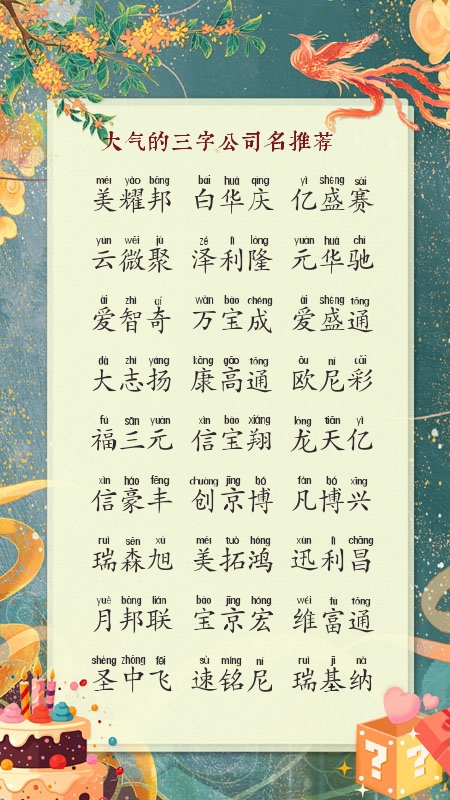 大气的三字公司名推荐
měi yào bāng bái huá qìng yì shèng sài
美耀邦 白华庆 亿盛赛
yún wēi jù zé lì lóng yuán huá chí
云微聚 泽利隆 元华驰
ài zhì qí wàn bǎo chéng ài shèng tōng
爱智奇 万宝成 爱盛通
dà zhì yáng kāng gāo tōng ōu ní cǎi
大志扬 康高通 欧尼彩
fú sān yuán xìn bǎo xiáng lóng tiān yì
福三元 信宝翔 龙天亿
xìn háo fēng chuàng jīng bó fán bó xīng
信豪丰 创京博 凡博兴
ruì sēn xù měi tuò hóng xùn lì chāng
瑞森旭 美拓鸿 迅利昌
yuè bāng lián bǎo jīng hóng wéi fù tōng
月邦联 宝京宏 维富通
shèng zhōng fēi sù míng ní ruì jī nà
圣中飞 速铭尼 瑞基纳
? ?